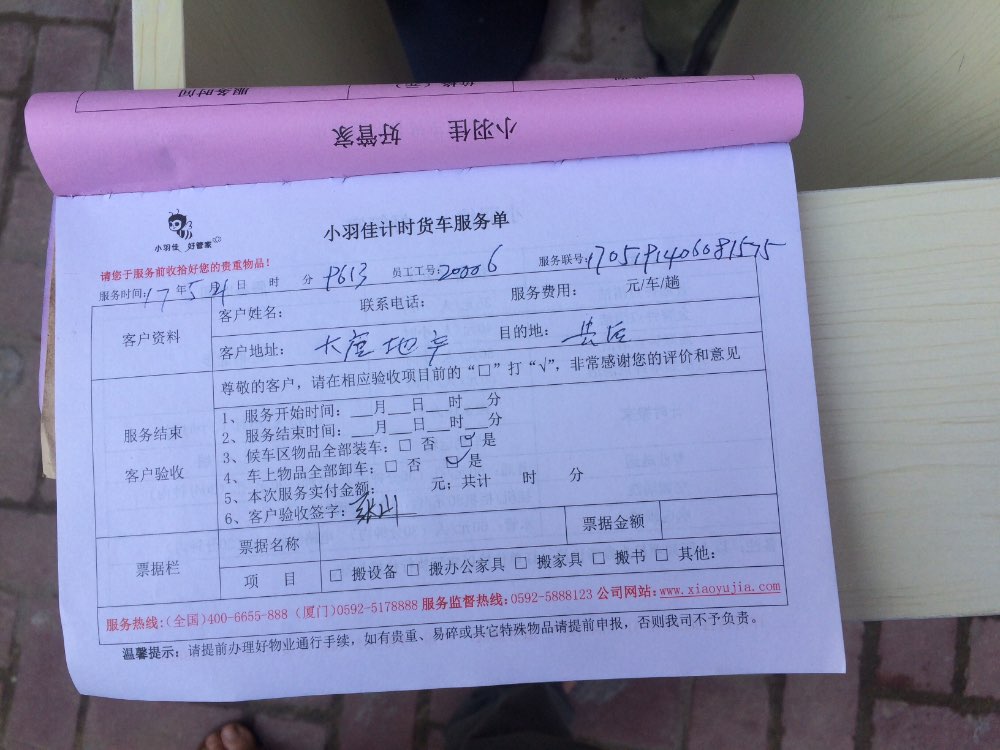 服务时间
小羽佳 好管家
小羽佳 好管家
小羽佳计时货车服务单
请您于服务前收拾好您的贵重物品!
服务时间:17年5月 日 时 分 P613 员工工号:200006 服务联号:1705191406081575
客户资料
客户姓名: 联系电话: 服务费用: 元/车/趟
客户地址: 大唐地产 目的地:
尊敬的客户,请在相应验收项目前的“□”打“√”,非常感谢您的评价和意见
服务结束
客户验收
1、服务开始时间:___月___日___时___分
2、服务结束时间:___月___日___时___分
3、候车区物品全部装车:□ 否 ☑ 是
4、车上物品全部卸车:□ 否 ☑ 是
5、本次服务实付金额: 元;共计 时 分
6、客户验收签字:
票据栏
票据名称 票据金额
项 目 □ 搬设备 □ 搬办公家具 □ 搬家具 □ 搬书 □ 其他:
服务热线:(全国)400-6655-888 (厦门)0592-5178888 服务监督热线:0592-5888123 公司网站:www.xiaoyujia.com
温馨提示:请提前办理好物业通行手续,如有贵重、易碎或其它特殊物品请提前申报,否则我司不予负责。